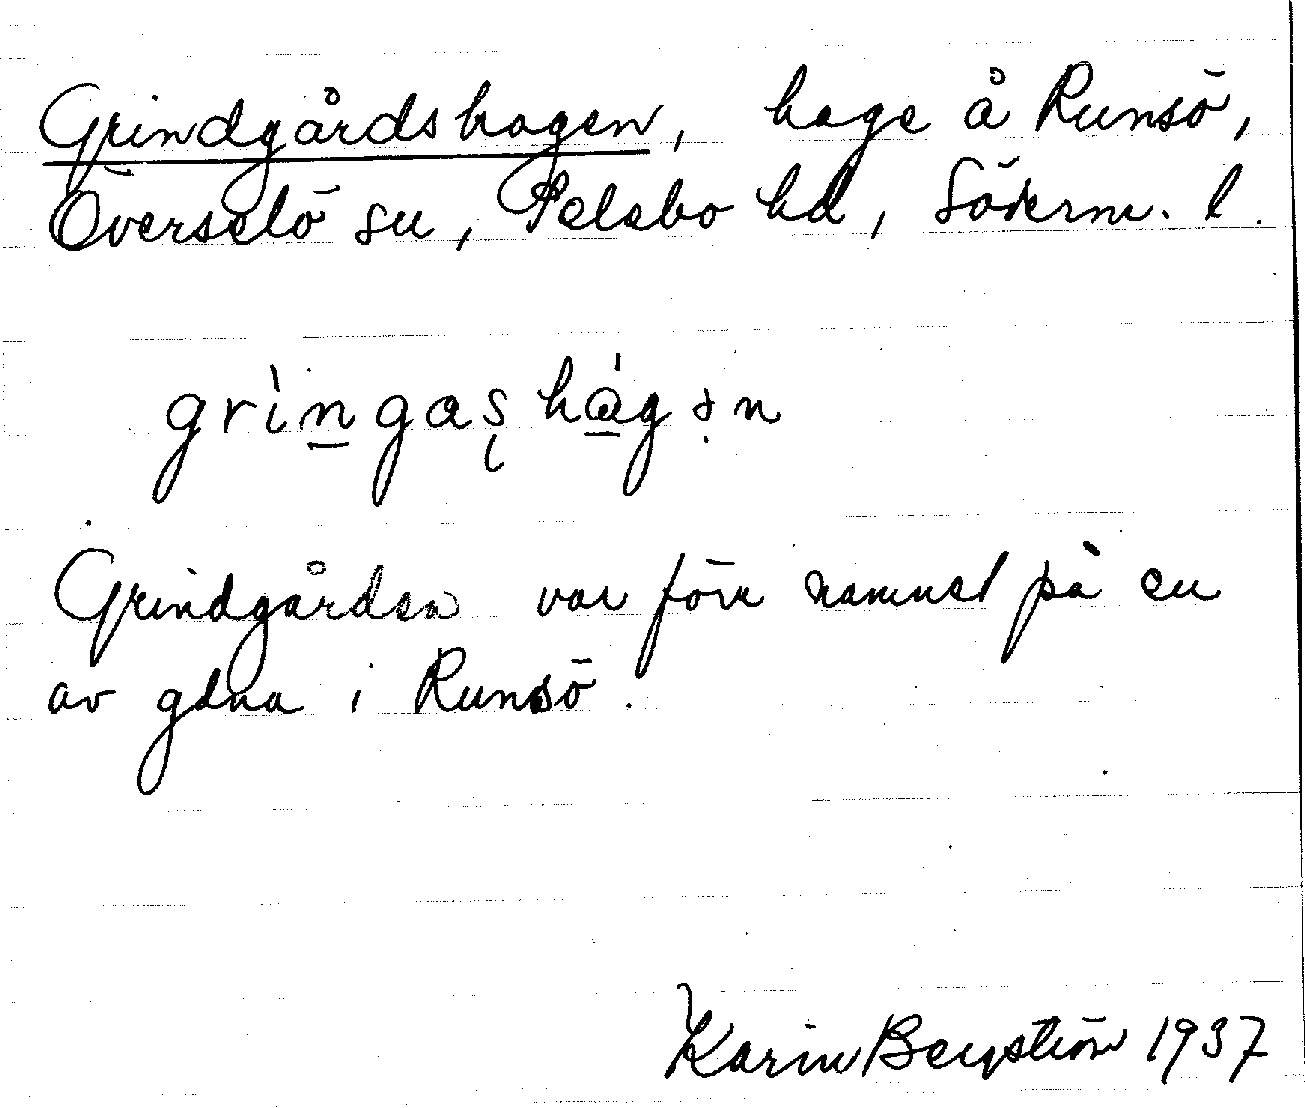 Grindgårdshagen, hage å Runsö,
Överselö sn, Selebo hd, Söderm. l.
grìn̲gas̨hág̲ən
Grindgården var förr namnet på en
av gdna i Runsö.
Karin Bergström 1937